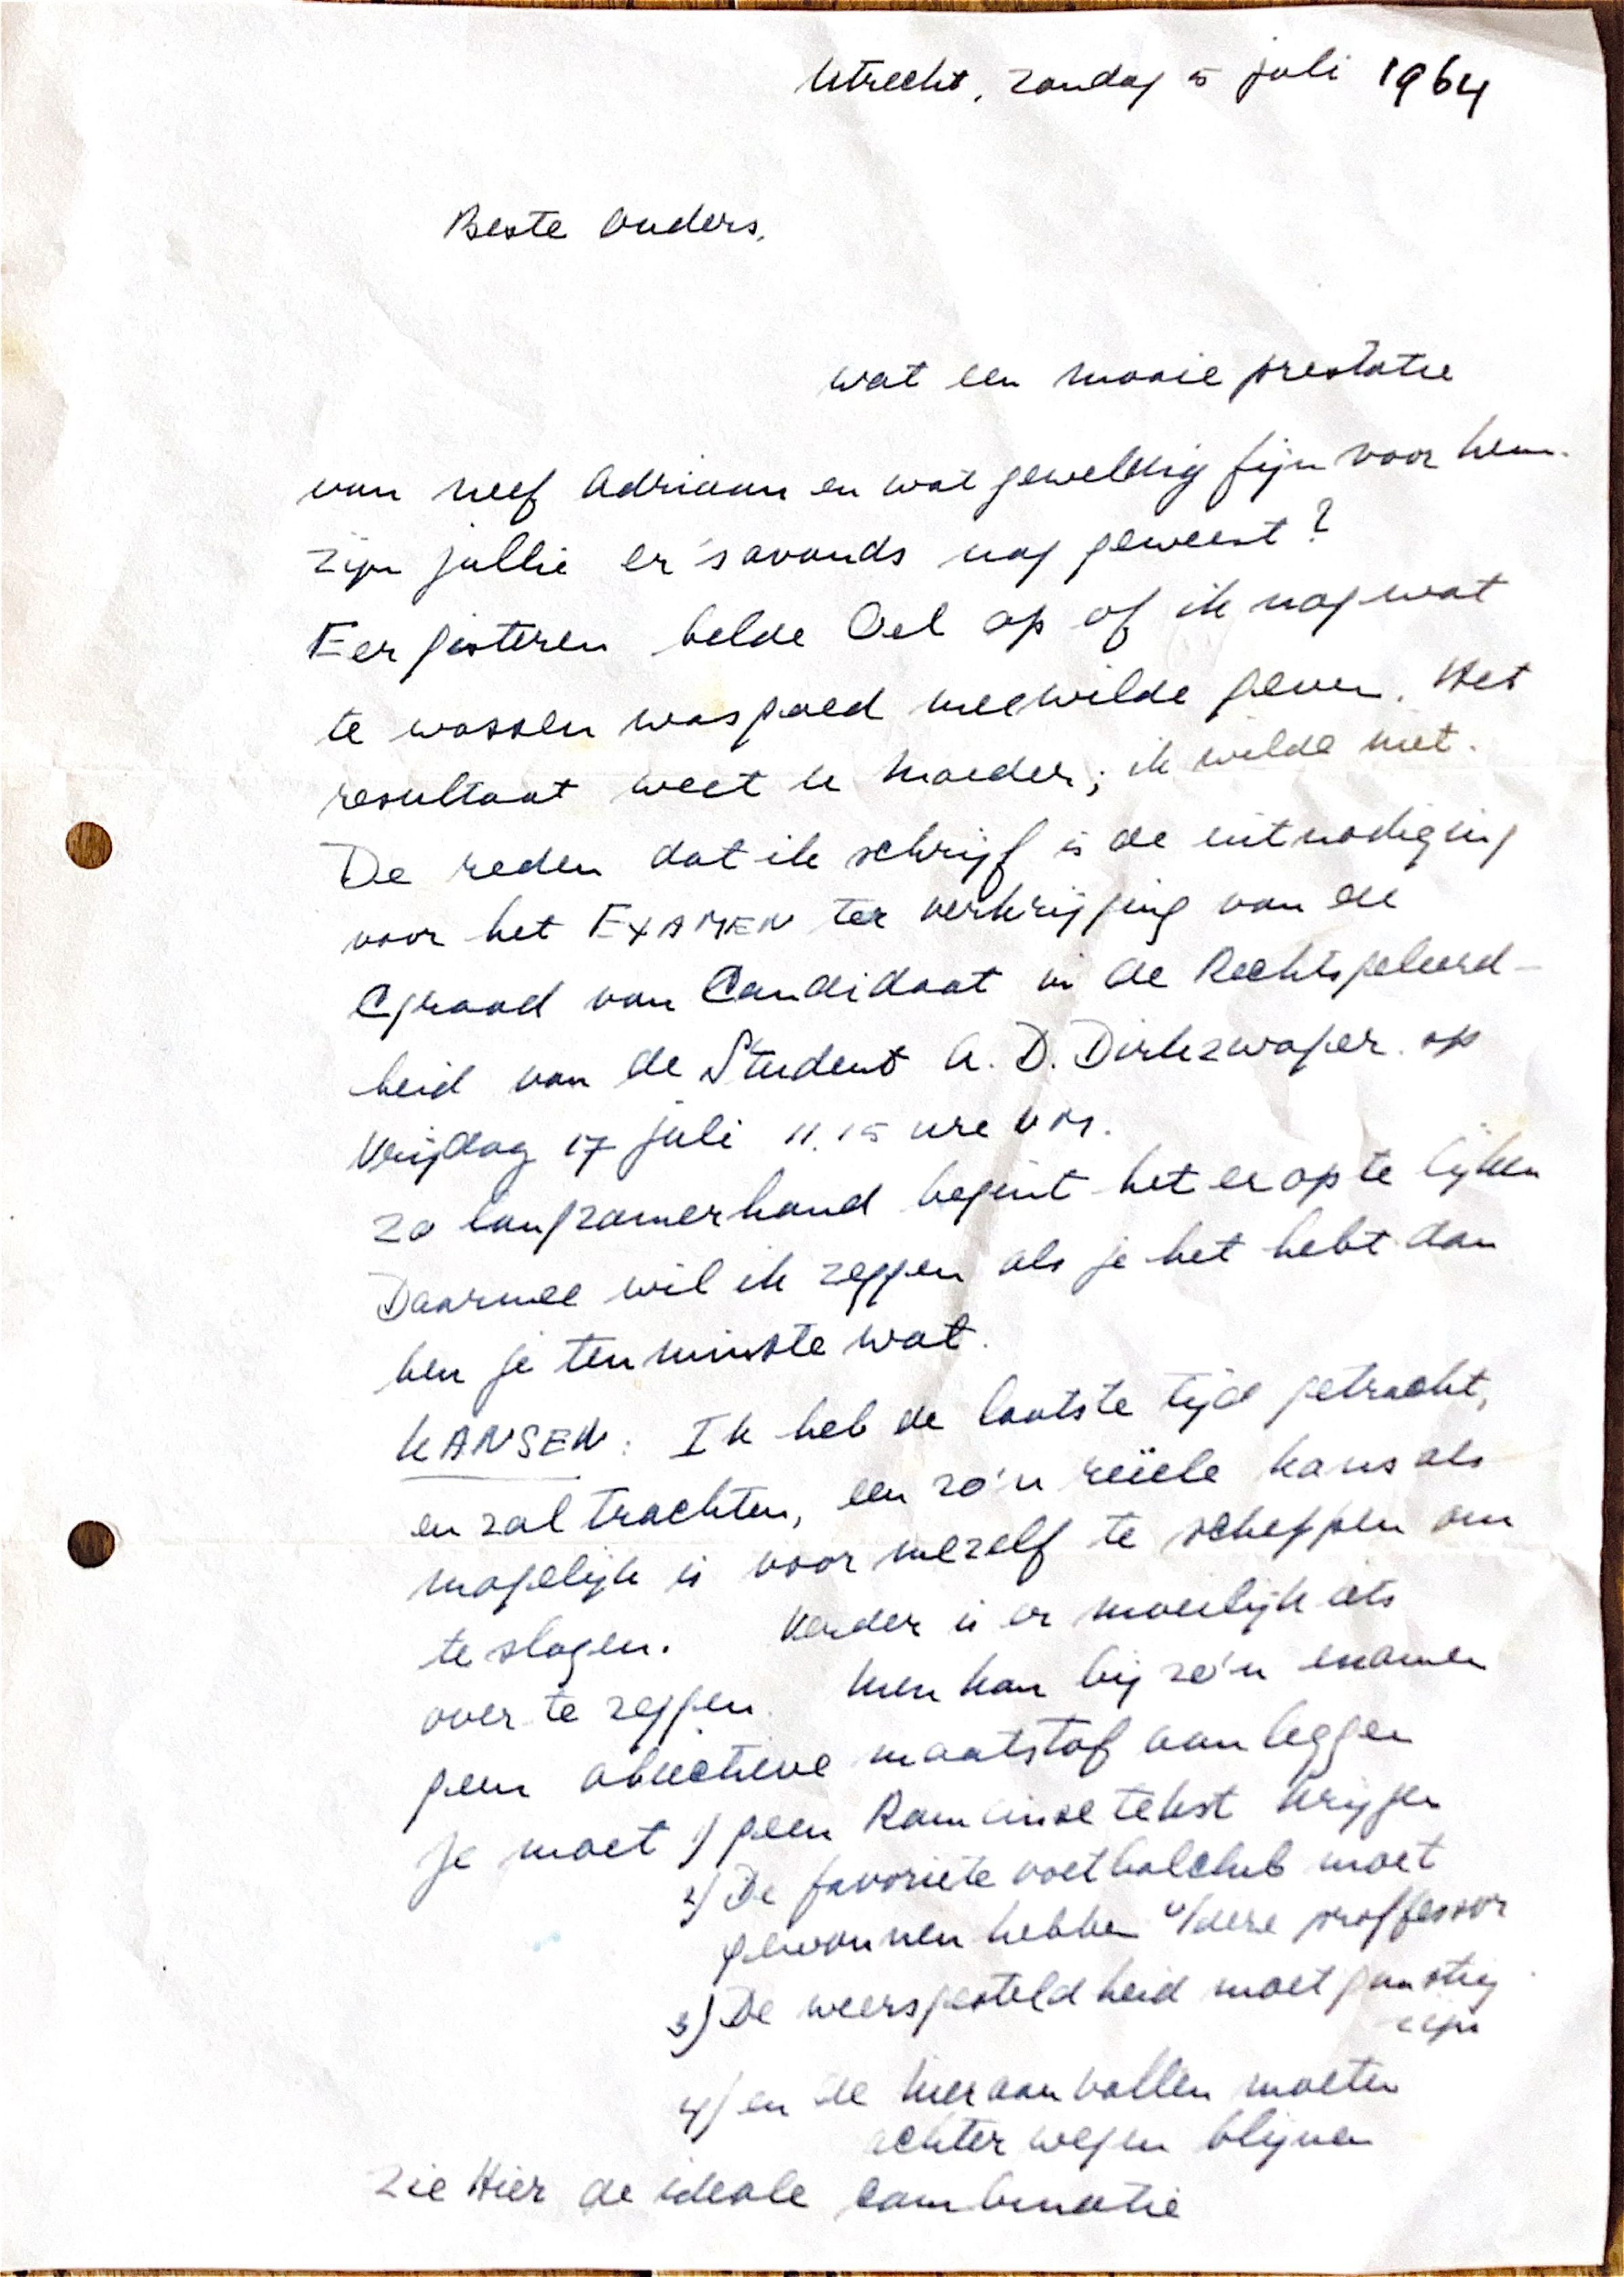 Utrecht, zondag 5 juli 1964
Beste Ouders,
wat een mooie prestatie
van neef Adriaan en wat geweldig fijn voor hem.
Zijn jullie er 's avonds nog geweest?
Eergisteren belde Oel op of ik nog wat
te wassen wasgoed mee wilde geven. Het
resultaat weet u moeder; ik wilde niet.
De reden dat ik schrijf is de uitnodiging
voor het EXAMEN ter verkrijging van de
Graad van Candidaat in de Rechtsgeleerd-
heid van de Student A. D. Dirkzwager op
Vrijdag 17 juli 11.15 ure VM.
zo langzamerhand begint het er op te lijken
Daarmee wil ik zeggen als je het hebt dan
ben je tenminste wat.
KANSEN: Ik heb de laatste tijd getracht,
en zal trachten, een zo'n reïele kans als
mogelijk is voor mezelf te scheppen om
te slagen. Verder is er moeilijk iets
over te zeggen. Men kan bij zo'n examen
geen objectieve maatstaf aanleggen
Je moet 1) geen Romeinse tekst krijgen
2) De favoriete voetbalclub moet
gewonnen hebben v/deze proffessor
3) De weersgesteldheid moet gunstig
zijn
4) en de nieraanvallen moeten
achterwegen blijven
Zie Hier de ideale combinatie